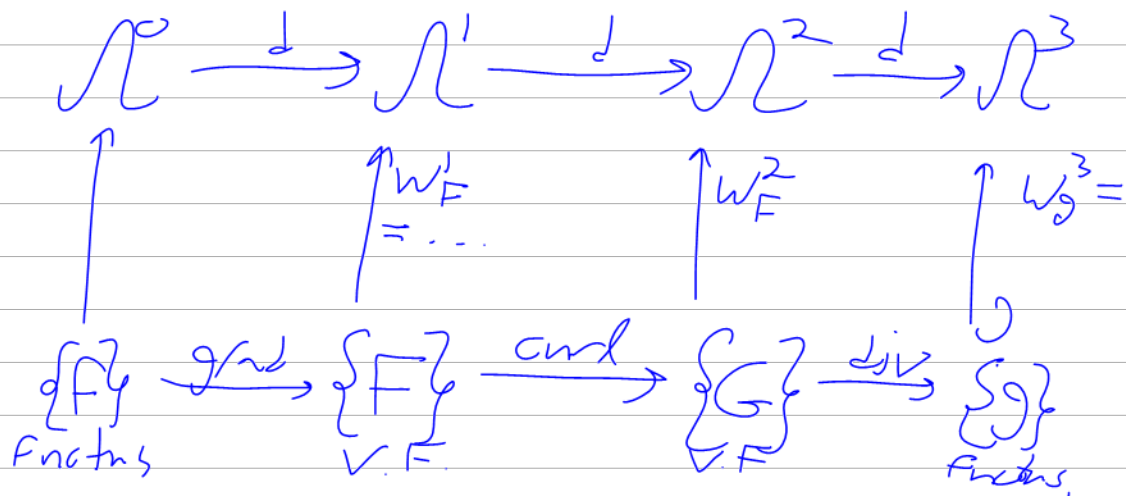 Ω⁰ d Ω¹ d Ω² d Ω³
W¹_F W²_F W³_g =
= ...
{f} grad {F} curl {G} div {g}
Fnctns V.F. V.F functns.